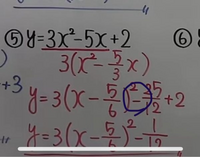 ⑤ y=3x²-5x+2 ⑥
3(x²-5/3x)
+3
y=3(x-5/6)²-25/12+2
y=3(x-5/6)²-1/12